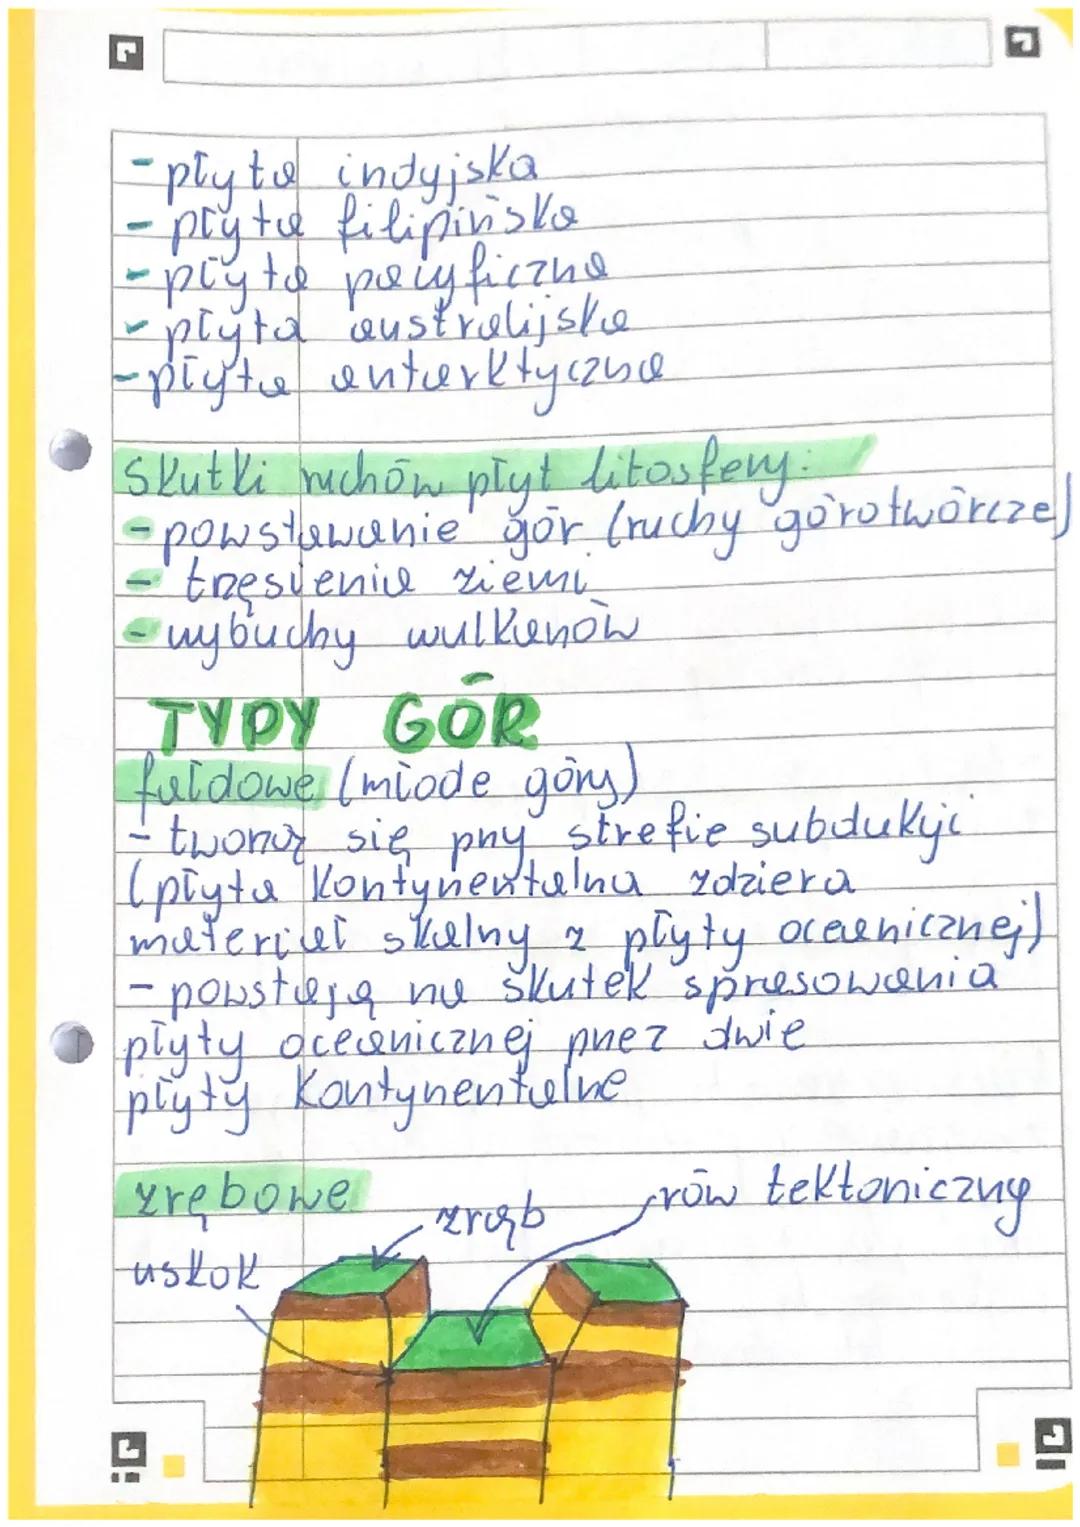 - płyta indyjska
- płyta filipińska
- płyta pacyficzna
- płyta australijska
- płyta antarktyczna
Skutki ruchów płyt litosfery:
- powstawanie gór (ruchy górotwórcze)
- trzęsienia ziemi
- wybuchy wulkanów
TYPY GÓR
fałdowe (młode góry)
- tworzą się przy strefie subdukcji
(płyta kontynentalna zdziera
materiał skalny z płyty oceanicznej)
- powstają na skutek sprasowania
płyty oceanicznej przez dwie
płyty kontynentalne
zrębowe
zrąb
rów tektoniczny
uskok